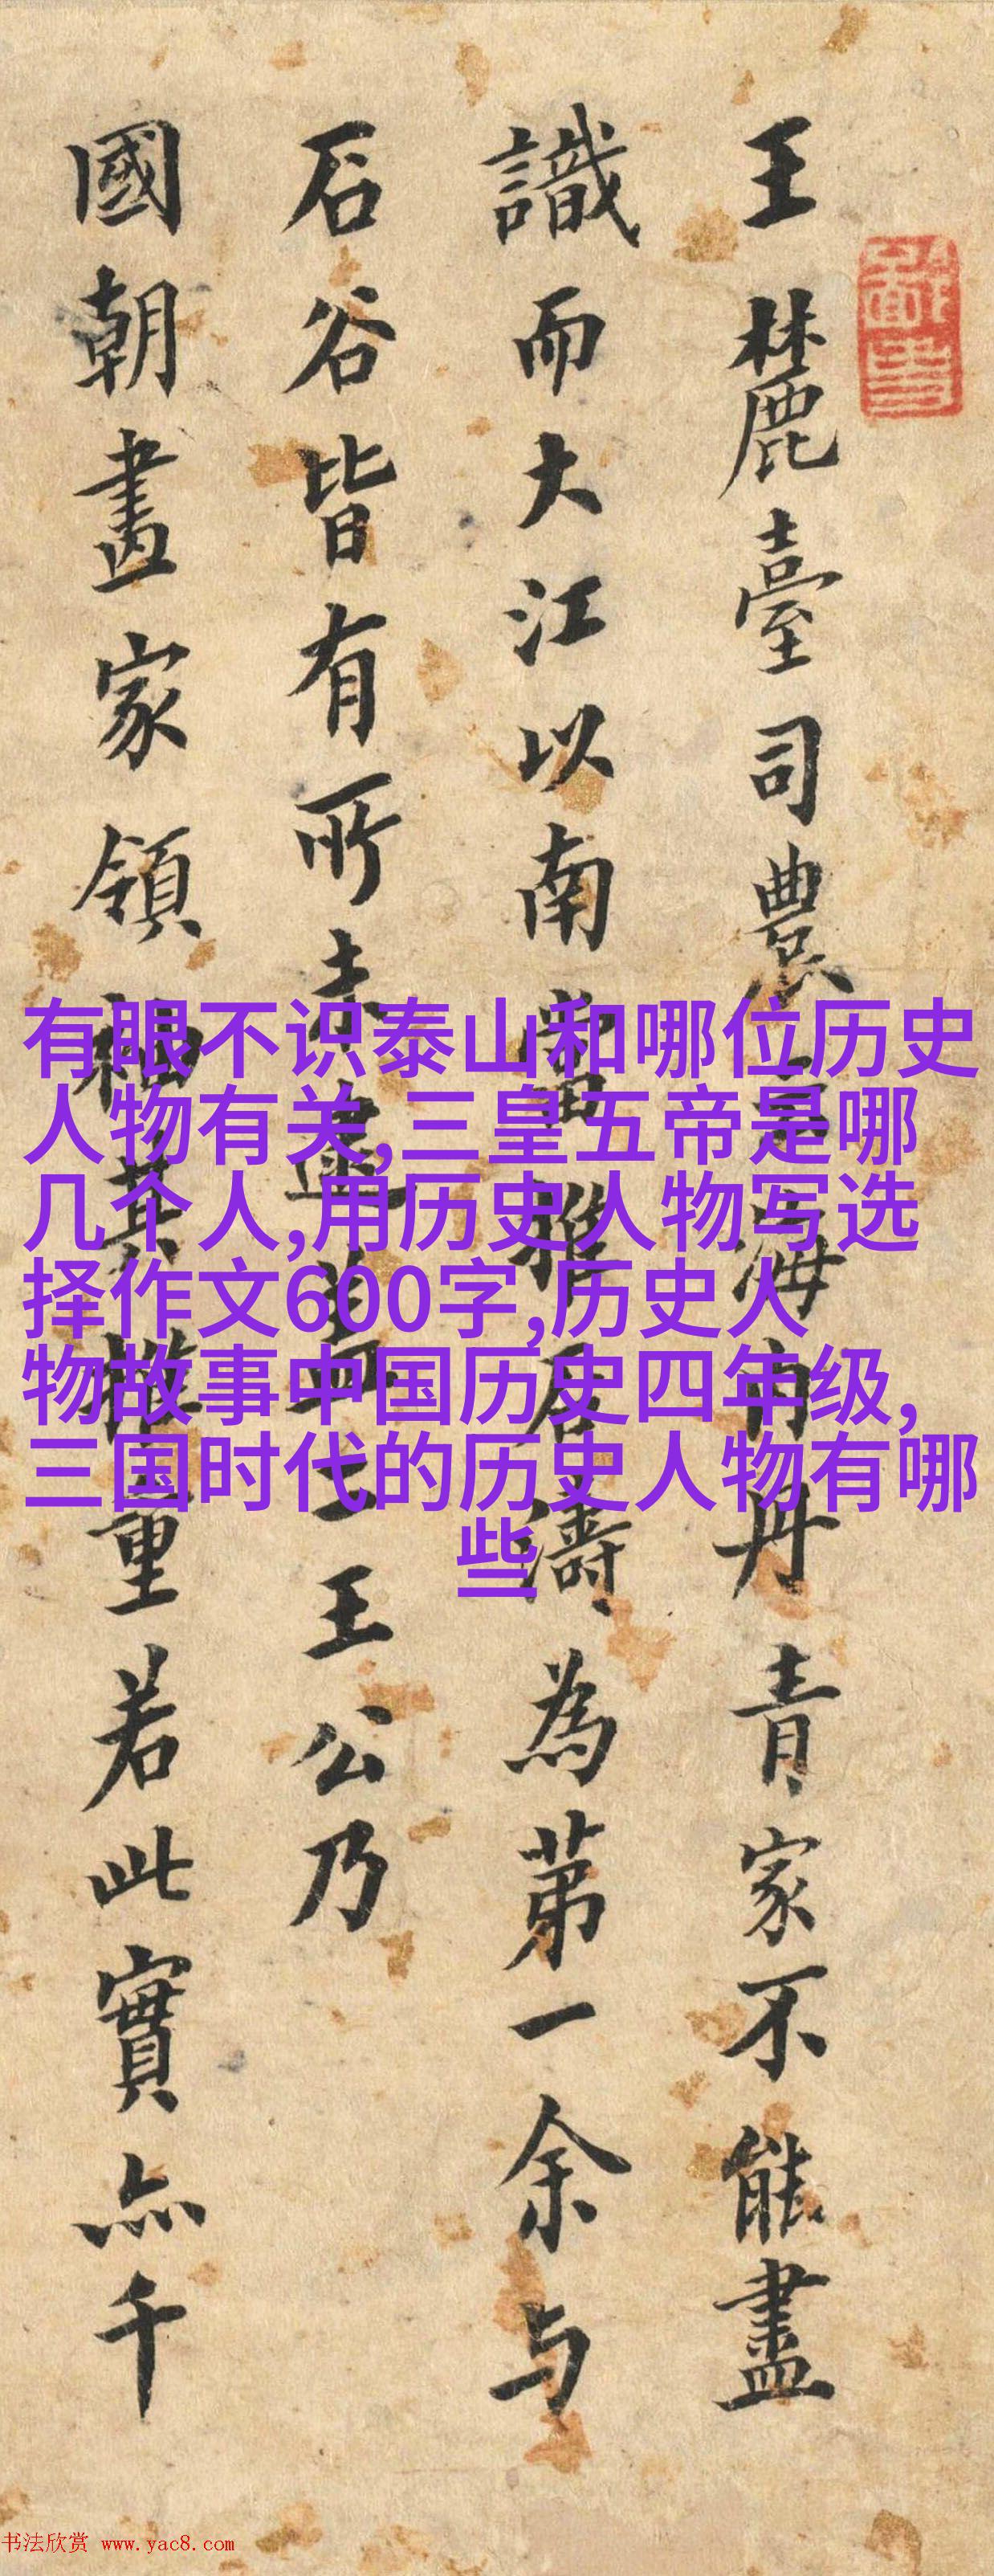 王麓臺司農言海内丹青家不能盡
識而大江以南當推石濤為第一余与
石谷皆有所未王公乃
國朝畫家領袖其推重若此實亦千
有眼不识泰山和哪位历史
人物有关,三皇五帝是哪
几个人,用历史人物写选
择作文600字,历史人
物故事中国历史四年级,
三国时代的历史人物有哪
些
书法欣赏 www.yac8.com